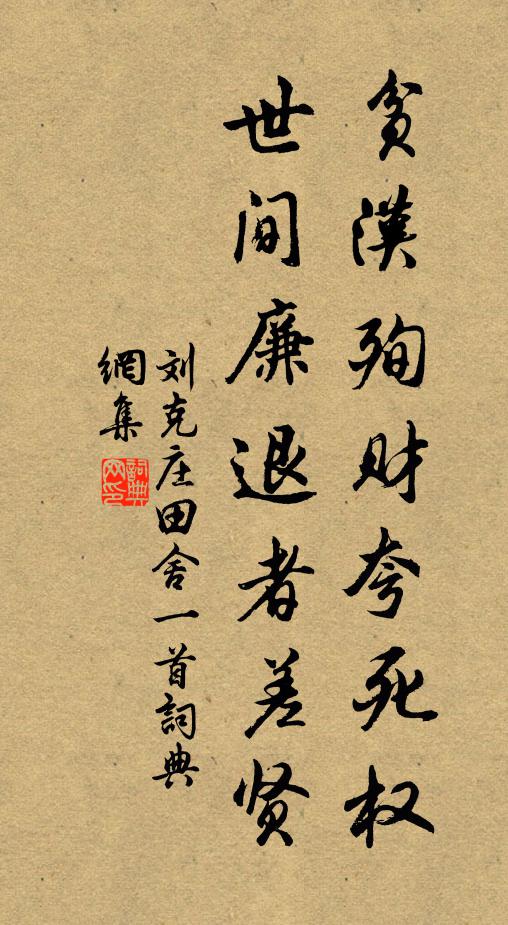 贪漢殉财夸死权
世间廉退者差贤
刘克庄田舍一首詞典
網集
詞典
网印